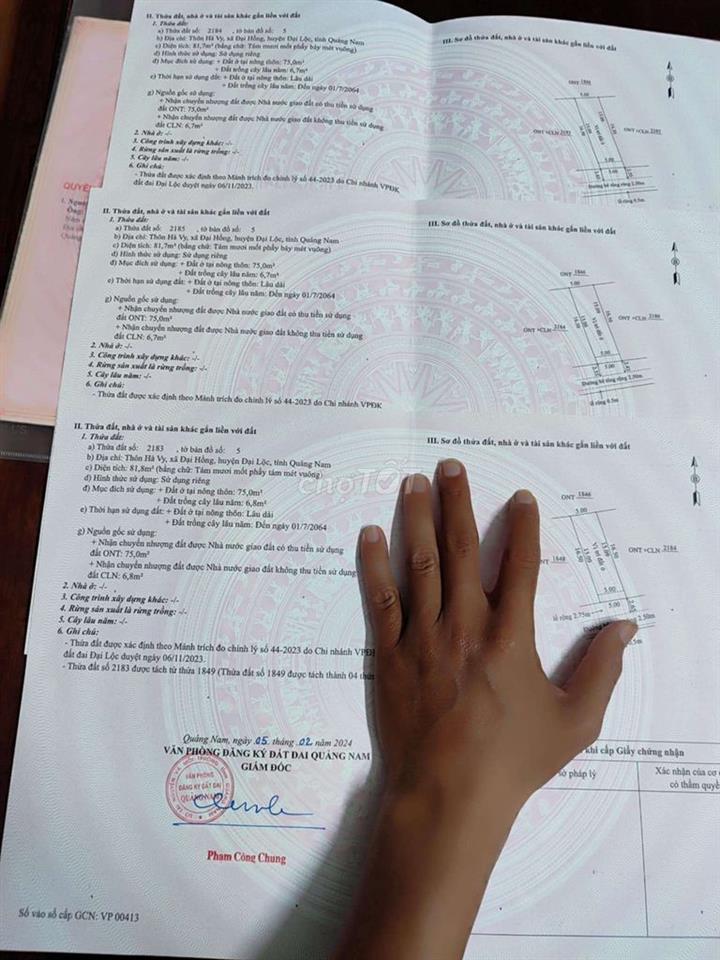 II. Thửa đất, nhà ở và tài sản khác gắn liền với đất
1. Thửa đất:
a) Thửa đất số: 2184 , tờ bản đồ số: 5
b) Địa chỉ: Thôn Hà Vy, xã Đại Hồng, huyện Đại Lộc, tỉnh Quảng Nam
c) Diện tích: 81,7m² (bằng chữ: Tám mươi mốt phẩy bảy mét vuông)
d) Hình thức sử dụng: Sử dụng riêng
đ) Mục đích sử dụng: + Đất ở tại nông thôn: 75,0m²
+ Đất trồng cây lâu năm: 6,7m²
e) Thời hạn sử dụng đất: + Đất ở tại nông thôn: Lâu dài
+ Đất trồng cây lâu năm: Đến ngày 01/7/2064
g) Nguồn gốc sử dụng:
+ Nhận chuyển nhượng đất được Nhà nước giao đất có thu tiền sử dụng
đất ONT: 75,0m²
+ Nhận chuyển nhượng đất được Nhà nước giao đất không thu tiền sử dụng
đất CLN: 6,7m²
2. Nhà ở: -/-
3. Công trình xây dựng khác: -/-
4. Rừng sản xuất là rừng trồng: -/-
5. Cây lâu năm: -/-
6. Ghi chú:
- Thửa đất được xác định theo Mảnh trích đo chỉnh lý số 44-2023 do Chi nhánh VPĐK
đất đai Đại Lộc duyệt ngày 06/11/2023.
III. Sơ đồ thửa đất, nhà ở và tài sản khác gắn liền với đất
ONT 1846
5.00
ONT+CLN 2183
ONT+CLN 2185
Vị trí đất ở
5.00
Đường bê tông rộng 2.50m
lề rộng 0.5m
QUYỀN
II. Thửa đất, nhà ở và tài sản khác gắn liền với đất
1. Thửa đất:
a) Thửa đất số: 2185 , tờ bản đồ số: 5
b) Địa chỉ: Thôn Hà Vy, xã Đại Hồng, huyện Đại Lộc, tỉnh Quảng Nam
c) Diện tích: 81,7m² (bằng chữ: Tám mươi mốt phẩy bảy mét vuông)
d) Hình thức sử dụng: Sử dụng riêng
đ) Mục đích sử dụng: + Đất ở tại nông thôn: 75,0m²
+ Đất trồng cây lâu năm: 6,7m²
e) Thời hạn sử dụng đất: + Đất ở tại nông thôn: Lâu dài
+ Đất trồng cây lâu năm: Đến ngày 01/7/2064
g) Nguồn gốc sử dụng:
+ Nhận chuyển nhượng đất được Nhà nước giao đất có thu tiền sử dụng
đất ONT: 75,0m²
+ Nhận chuyển nhượng đất được Nhà nước giao đất không thu tiền sử dụng
đất CLN: 6,7m²
2. Nhà ở: -/-
3. Công trình xây dựng khác: -/-
4. Rừng sản xuất là rừng trồng: -/-
5. Cây lâu năm: -/-
6. Ghi chú:
- Thửa đất được xác định theo Mảnh trích đo chỉnh lý số 44-2023 do Chi nhánh VPĐK
III. Sơ đồ thửa đất, nhà ở và tài sản khác gắn liền với đất
ONT 1846
5.00
ONT+CLN 2184
ONT+CLN 2186
Vị trí đất ở
5.00
5.00
Đường bê tông rộng 2.50m
lề rộng 0.5m
II. Thửa đất, nhà ở và tài sản khác gắn liền với đất
1. Thửa đất:
a) Thửa đất số: 2183 , tờ bản đồ số: 5
b) Địa chỉ: Thôn Hà Vy, xã Đại Hồng, huyện Đại Lộc, tỉnh Quảng Nam
c) Diện tích: 81,8m² (bằng chữ: Tám mươi mốt phẩy tám mét vuông)
d) Hình thức sử dụng: Sử dụng riêng
đ) Mục đích sử dụng: + Đất ở tại nông thôn: 75,0m²
+ Đất trồng cây lâu năm: 6,8m²
e) Thời hạn sử dụng đất: + Đất ở tại nông thôn: Lâu dài
+ Đất trồng cây lâu năm: Đến ngày 01/7/2064
g) Nguồn gốc sử dụng:
+ Nhận chuyển nhượng đất được Nhà nước giao đất có thu tiền sử dụng
đất ONT: 75,0m²
+ Nhận chuyển nhượng đất được Nhà nước giao đất không thu tiền sử dụng
đất CLN: 6,8m²
2. Nhà ở: -/-
3. Công trình xây dựng khác: -/-
4. Rừng sản xuất là rừng trồng: -/-
5. Cây lâu năm: -/-
6. Ghi chú:
- Thửa đất được xác định theo Mảnh trích đo chỉnh lý số 44-2023 do Chi nhánh VPĐK
đất đai Đại Lộc duyệt ngày 06/11/2023.
- Thửa đất số 2183 được tách từ thửa 1849 (Thửa đất số 1849 được tách thành 04 thửa
III. Sơ đồ thửa đất, nhà ở và tài sản khác gắn liền với đất
ONT 1846
5.00
NT 1848
ONT+CLN 2184
16.50
15.00
Vị trí đất ở
15.00
16.50
5.00
5.00
lề rộng 2.75m
2.50m
chợ TỐT
Quảng Nam, ngày 05 tháng 02 năm 2024
VĂN PHÒNG ĐĂNG KÝ ĐẤT ĐAI QUẢNG NAM
GIÁM ĐỐC
VĂN PHÒNG
ĐĂNG KÝ ĐẤT ĐAI
QUẢNG NAM
Phạm Công Chung
Số vào sổ cấp GCN: VP 00413
khi cấp Giấy chứng nhận
sở pháp lý
Xác nhận của cơ
có thẩm quyề